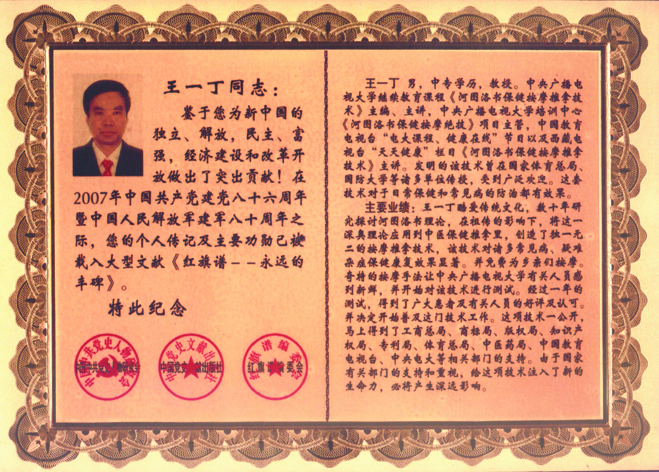 王一丁同志：
鉴于您为新中国的
独立、解放，民主、富
强，经济建设和改革开
放做出了突出贡献！在
2007年中国共产党建党八十六周年
暨中国人民解放军建军八十周年之
际，您的个人传记及主要功勋已被
载入大型文献《红旗谱——永远的
丰碑》。
特此纪念
中国党史文献出版社
红旗谱编委会
王一丁 男，中专学历，教授。中央广播电
视大学继续教育课程《河图洛书保健按摩推拿技
术》主编、主讲，中央广播电视大学培训中心
《河图洛书保健按摩绝技》项目主管，中国教育
电视台"电大课程、健康在线"节目以及西藏电
视台"天天健康"栏目《河图洛书保健按摩推拿
技术》主讲。发明的该技术曾在国家体育总局、
国防大学等诸多单位传授，受到广泛欢迎。这套
技术对于日常保健和常见病的防治都有效果。
主要业绩：王一丁酷爱传统文化，数十年研
究探讨河图洛书理论，在祖传的影响下，将这一
深奥理论应用到中医保健推拿里，创造了独一无
二的按摩推拿技术，该技术对诸多常见病、疑难
杂症保健康复效果显著。并免费为乡亲们按摩。
奇特的按摩手法让中央广播电视大学有关人员感
到新鲜，并开始对该技术进行测试。经过一年的
测试，得到了广大患者及有关人员的好评及认可。
并决定开始普及这门技术工作。这项技术一公开，
马上得到了工商总局、商标局、版权局、知识产
权局、专利局、体育总局、中医药局、中国教育
电视台、中央电大等相关部门的支持。由于国家
有关部门的支持和重视，给这项技术注入了新的
生命力，必将产生深远影响。